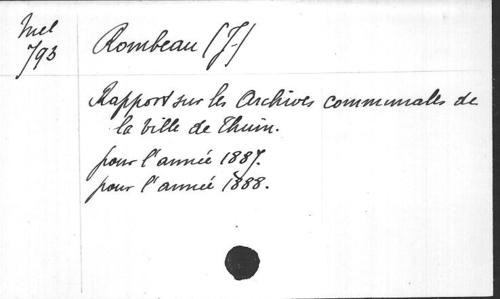 Mel
793
Rombeau (J.)
Rapport sur les Archives communales de
la ville de Thuin.
pour l'année 1887.
pour l'année 1888.